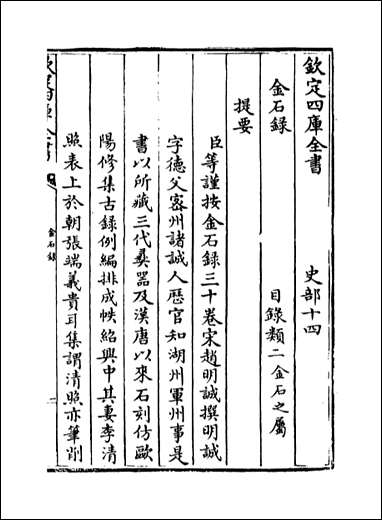 欽定四庫全書
史部十四
金石錄
目錄類二金石之屬
提要
臣等謹按金石錄三十卷宋趙明誠撰明誠
字德父密州諸誠人歷官知湖州軍州事是
書以所藏三代彝器及漢唐以來石刻仿歐
陽修集古錄例編排成帙紹興中其妻李清
照表上於朝張端義貴耳集謂清照亦筆削
金石錄